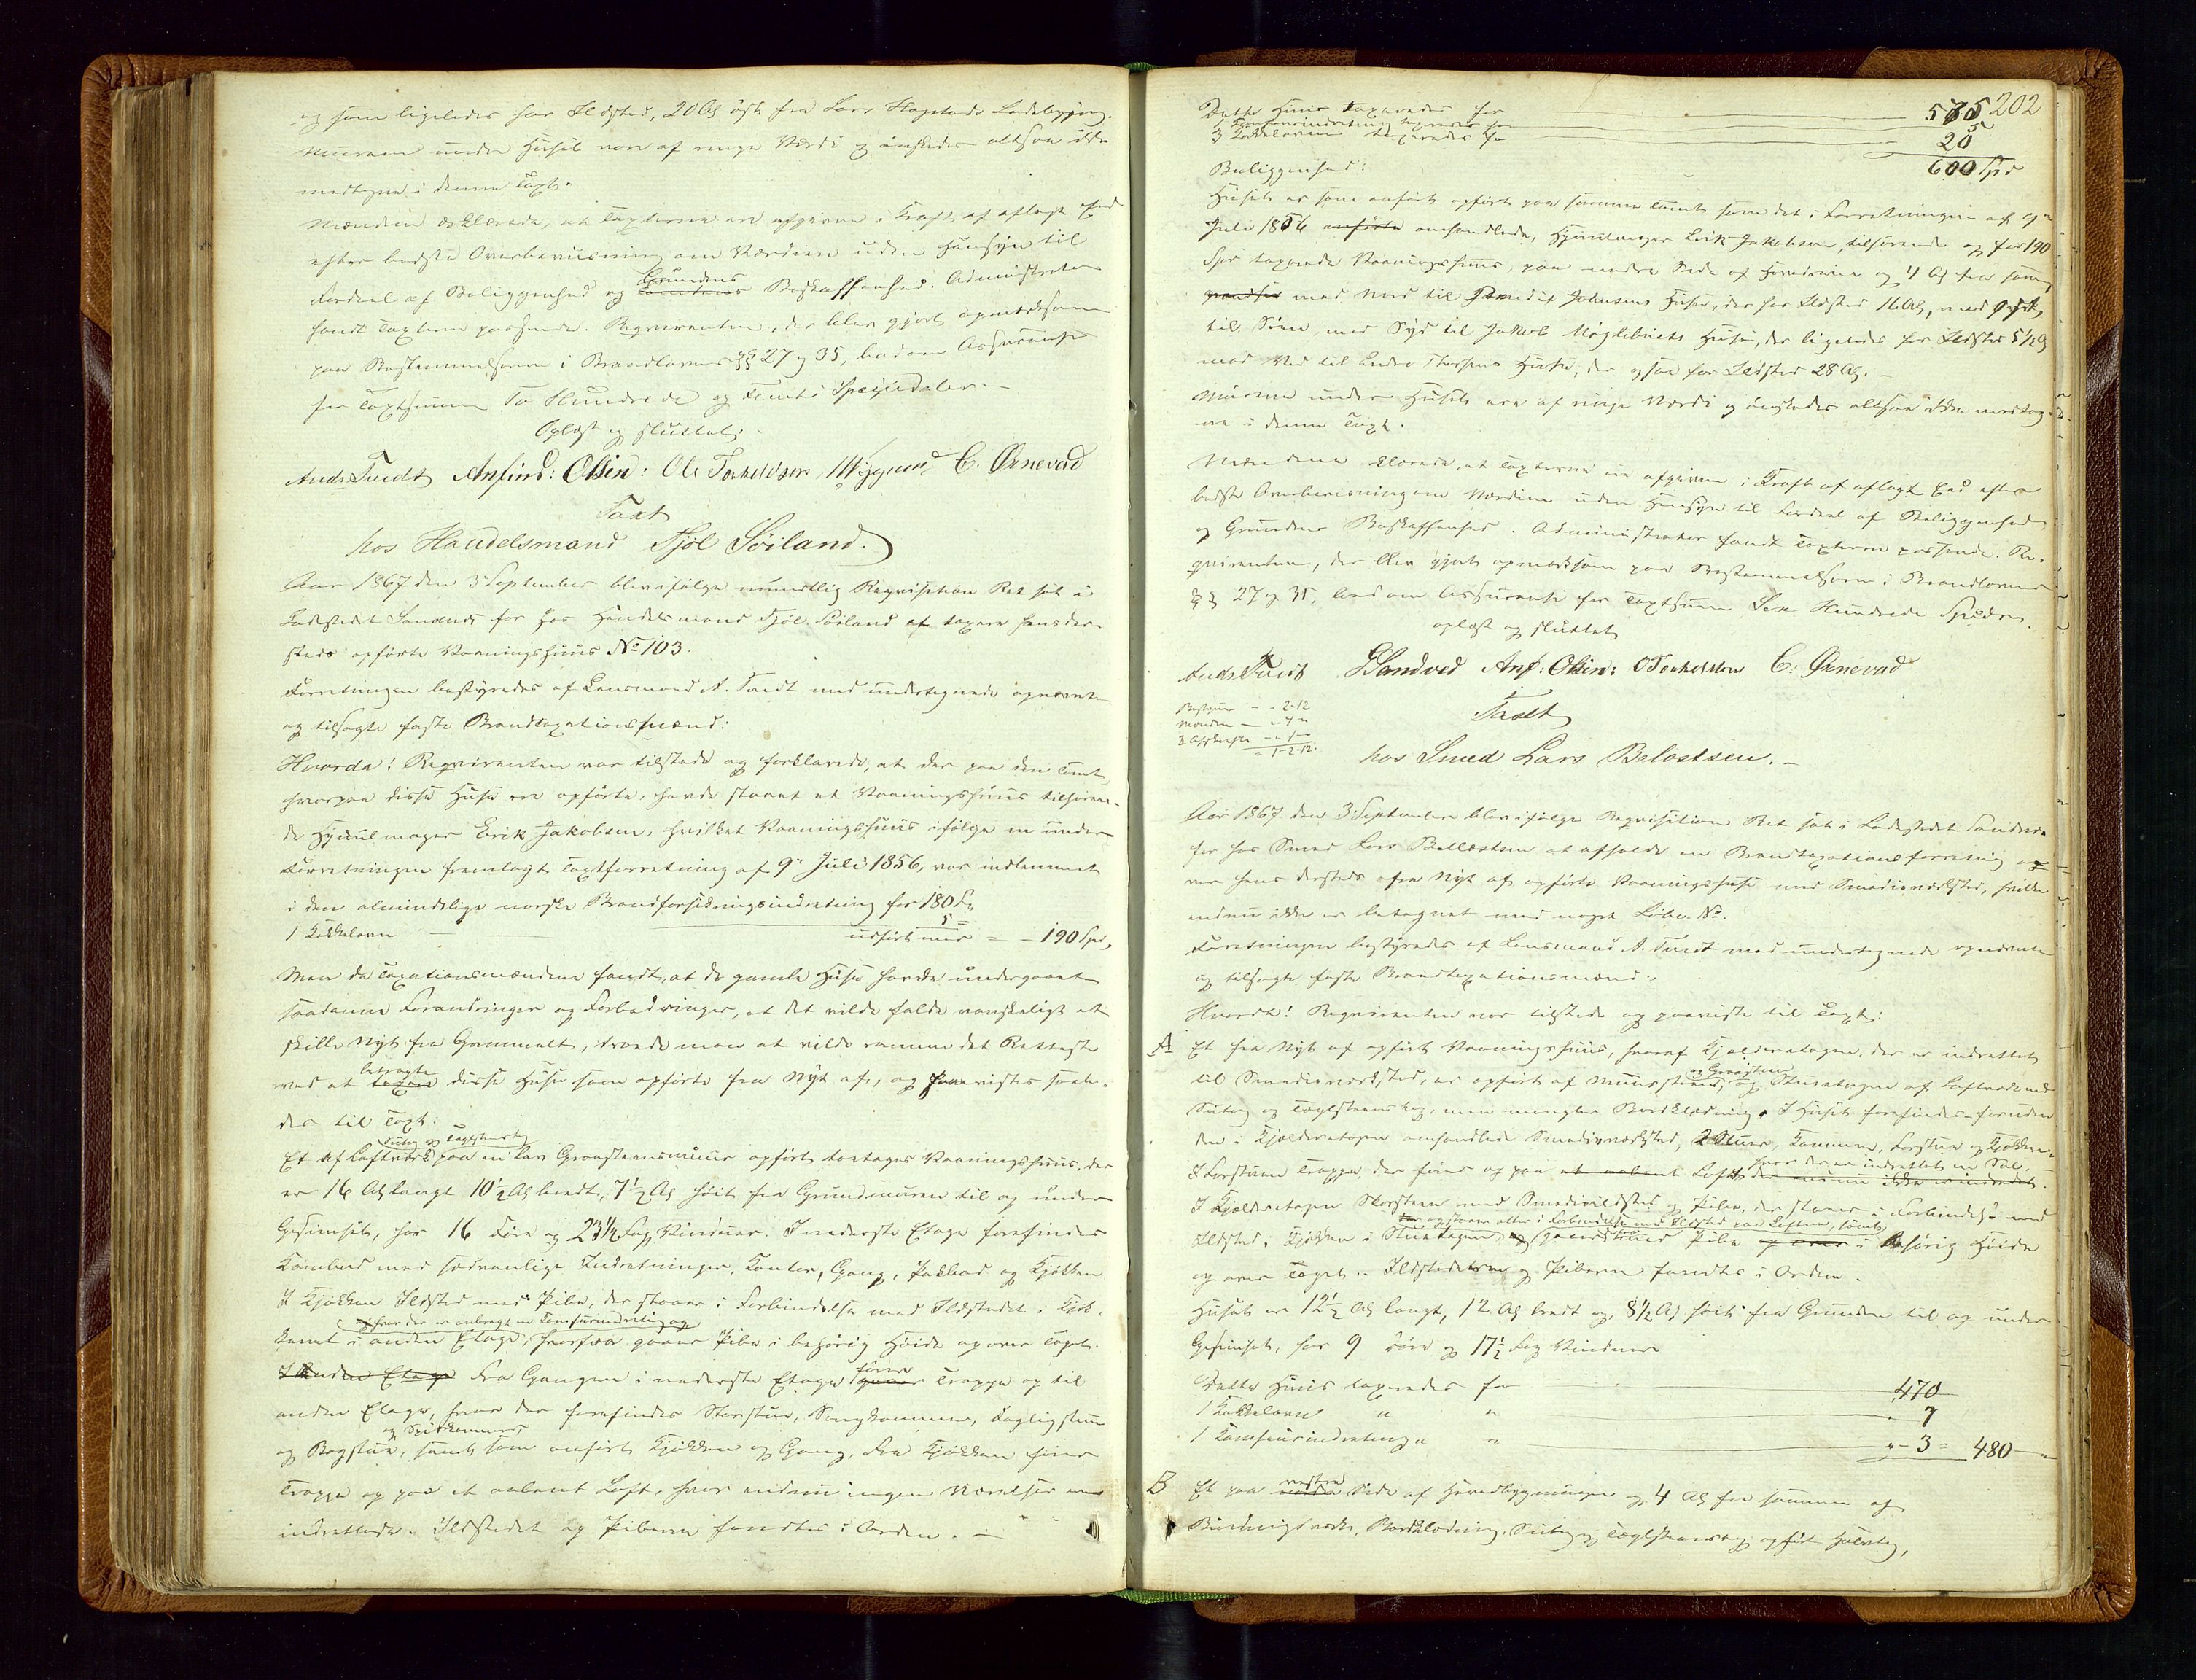 og som ligeledes har Ildsted, 20 Al øst fra Lars Hogstads Ladebygning.
Murene under Huset vare af ringe Værdi og ønskedes altsaa ikke
medtagne i denne Taxt.
Mændene erklærede, at Taxterne ere afgivne i Kraft af aflagt Eed
efter bedste Overbeviisning om Værdien uden Hensyn til
Fordeel af Beliggenhed og Grundens Beskaffenhed. Administrator
fandt Taxterne passende. Reqvirenten, der blev gjort opmærksom
paa Bestemmelserne i Brandlovens §§ 27 og 35, bad om Assurance
for Taxtsummen To Hundrede og Femti Speciedaler.
Oplæst og sluttet.
Ands Tuedt Anfind: Olsin: Ole Torkeldsen C. Ørnevad
Taxt
hos Handelsmand Tjøl Søiland.
Aar 1867 den 3 September blev ifølge mundtlig Reqvisition Ret sat i
Ladestedet Sandnæs for hos Handelsmand Tjøl Søiland at taxere hans der-
steds opførte Vaaningshuus No 103.
Forretningen bestyredes af Lensmand A. Tuedt med undertegnede opnævnte
og tilsagte faste Brandtaxationsmænd:
Hvorda! Reqvirenten var tilstede og forklarede, at der paa den Tomt,
hvorpaa disse Huse ere opførte, havde staaet et Vaaningshuus tilhøren-
de Hjuulmager Erik Jakobsen, hvilket Vaaningshuus ifølge en under
Forretningen fremlagt Taxtforretning af 9de Juli 1856, var indlemmet
i den almindelige norske Brandforsikringsindretning for 180
1 Kakkelovn 5 =
udført med = - 190 Spd,
Men da Taxationsmændene fandt, at de gamle Huse havde undergaaet
saadanne Forandringer og Forbedringer, at det vilde falde vanskeligt at
skille Nyt fra Gammelt, troede man at vilde ramme det Retteste
ved at betragte disse Huse som opførte fra Nyt af, og paavistes saale-
des til Taxt:
Sutag og Taglsteenstag
Et af Laftværk paa en lav Graasteensmuur opført toetages Vaaningshuus, der
er 16 Al langt 10½ Al bredt, 7½ Al høit fra Grundmuren til op under
Gesimset, har 16 Døre og 23½ Fag Vinduer. I nederste Etage forefindes
Kambod med sædvanlige Indretninger, Kontor, Gang, Pakbod og Kjøkken
I Kjøkken Ildsted med Pibe, der staaer i Forbindelse med Ildstedet i Kjøk-
hvor der er anbragt en Komfurindretning og
kenet i anden Etage, hvorfra gaaer Pibe i behørig Høide op over Taget.
I Anden Etage Fra Gangen i nederste Etage fører Trappe op til
anden Etage, hvor der forefindes Storstue, Sengkammer, Dagligstue
og Spiskammer
og Bagstue, samt som anført Kjøkken og Gang, fra Kjøkken fører
Trappe op paa et aabent Loft, hvor endnu ingen Værelser ere
indrettede. Ildstedet og Piberne fandtes i Orden.
202
Dette Huus taxeredes for 575
1 Komfurindretning taxeredes for
3 Kakkelovne taxeredes for 25
600 Spd
Beliggenhed:
Huset er som anført opført paa samme Tomt som det i Forretningen af 9de
Juli 1856 anførte omhandlede, Hjuulmager Erik Jakobsen tilhørende og for 190
Spd taxerede Vaaningshuus, paa nedre Side af Hovedveien og 4 Al fra samme,
grændser mod Nord til Johnsens Huse, der har Ildsted 16 Al, mod Øst
til Søen, mod Syd til Jakob Møglebusts Huse, der ligeledes har Ildsted 5½ Al
mod Vest til Endre Thorsens Huse, der ogsaa har Ildsted 28 Al.
Murene under Huset ere af ringe Værdi og ønskedes altsaa ikke medtag-
ne i denne Taxt.
Mændene erklærede, at Taxterne ere afgivne i Kraft af aflagt Eed efter
bedste Overbeviisning om Værdien uden Hensyn til Fordeel af Beliggenhed
og Grundens Beskaffenhed. Administrator fandt Taxterne passende. Re-
qvirenten, der blev gjort opmærksom paa Bestemmelserne i Brandlovens
§§ 27 og 35, bad om Assurance for Taxtsummen Sex Hundrede Spedr.
oplæst og sluttet
Ands Tuedt Sandved Anf: Olsin: O Torkeldsen C: Ørnevad
Bestyrer - 2-12
Mænden - 4 "
- 1 -
- 1-2-12.
Taxt
hos Smed Lars Belastsen.
Aar 1867 den 3 September blev ifølge Reqvisition Ret sat i Ladestedet Sandnæs
for hos Smed Lars Bellestsen at afholde en Brandtaxationsforretning
over hans dersteds fra Nyt af opførte Vaaningshuse med Smedieværksted, hvilke
endnu ikke er betegnet med noget Løbe-No.
Forretningen bestyredes af Lensmand A. Tuedt med undertegnede opnævnte
og tilsagte faste Brandtaxationsmænd.
Hvorda! Reqvirenten var tilstede og paaviste til Taxt:
A Et fra Nyt af opført Vaaningshuus, hvoraf Kjælderetagen, der er indrettet
til Smedieværksted, er opført af Muursteen og Graasteen, og Stueetagen af Laftværk med
Sutag og Taglsteenstag, men mangler Bordklædning. I Huset forefindes foruden
den i Kjælderetagen omhandlede Smedieværksted, 2 Stuer, Kammer, Forstue og Kjøkken
I Forstuen Trappe, der fører op paa et aabent Loft, hvor der er indrettet en Sal,
der endnu ikke er indredet.
I Kjælderetagen Skorsteen med Smedieildsted og Pibe, der staaer i Forbindelse med
og staaer atter i Forbindelse med Ildsted paa Loftet, samt
Ildsted i Kjøkken i Stueetagen, Pibe op over i behørig Høide
op over Taget. Ildstederne og Piberne fandtes i Orden.
Huset er 12½ Al langt, 12 Al bredt og 8½ Al høit fra Grunden til op under
Gesimset, har 9 Døre og 17½ Fag Vinduer
Dette Huus taxeredes for 470
1 Kakkelovn " " 7
1 Komfurindretning " " 3 = 480
B Et paa vestre Side af Hovedbygningen og 4 Al fra samme af
Bindingsværk, Bordklædning, Sutag og Taglsteenstag opført